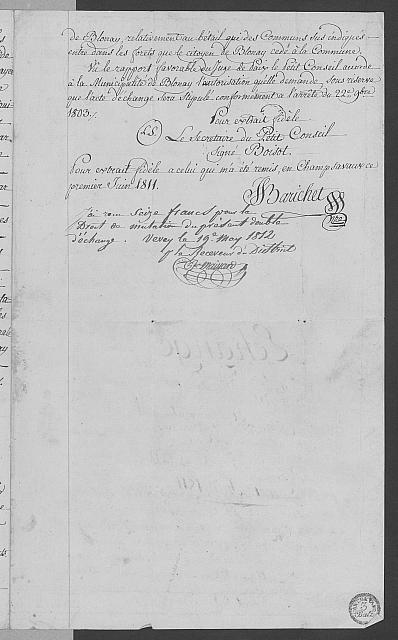 de Blonay, relativement au bétail qui des Communs sus indiqués
entre dans les forets que le citoyen de Blonay cède à la Commune.
Vû le rapport favorable du Juge de Paix le Petit Conseil accorde
à la Municipalité de Blonay l'autorisation qu'elle demande, sous reserve
que l'acte d'échange sera stipulé conformément à l'arrêté du 22e 9bre
1803.
Pour extrait fidèle
L.S. Le Secretaire du Petit Conseil
Signé Boisot.
Pour extrait fidèle a celui qui m'a été remis, en Champsavaux ce
premier Juin 1811.
Barichet
J'ai reçu seize francs pour le
Droit de mutation du présent double
d'échange. Vevey le 19e May 1812
Le Receveur du District
Echange